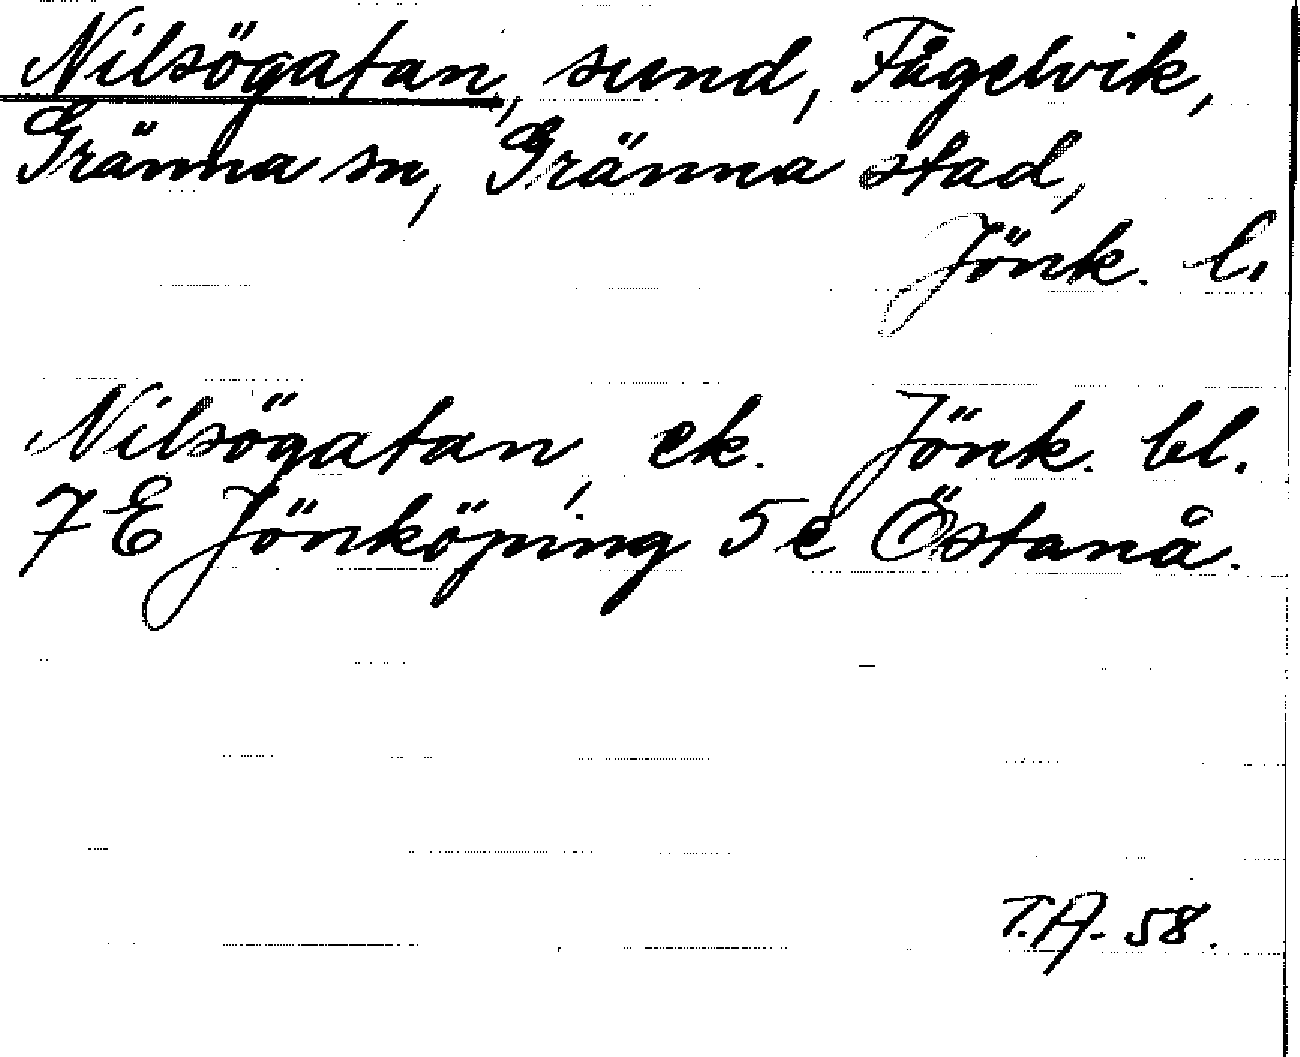 Nilsögatan, sund, Fågelvik,
Gränna sn, Gränna stad,
Jönk. l.
Nilsögatan, ek. Jönk. bl.
7 E Jönköping 5 e Östanå.
T.A. 58.